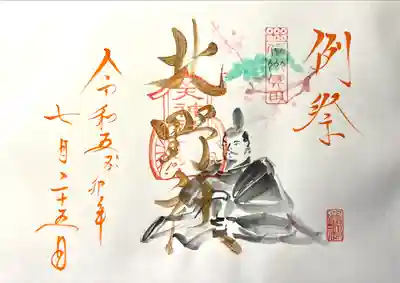 例祭
北野
令和五癸卯年
七月二十五日